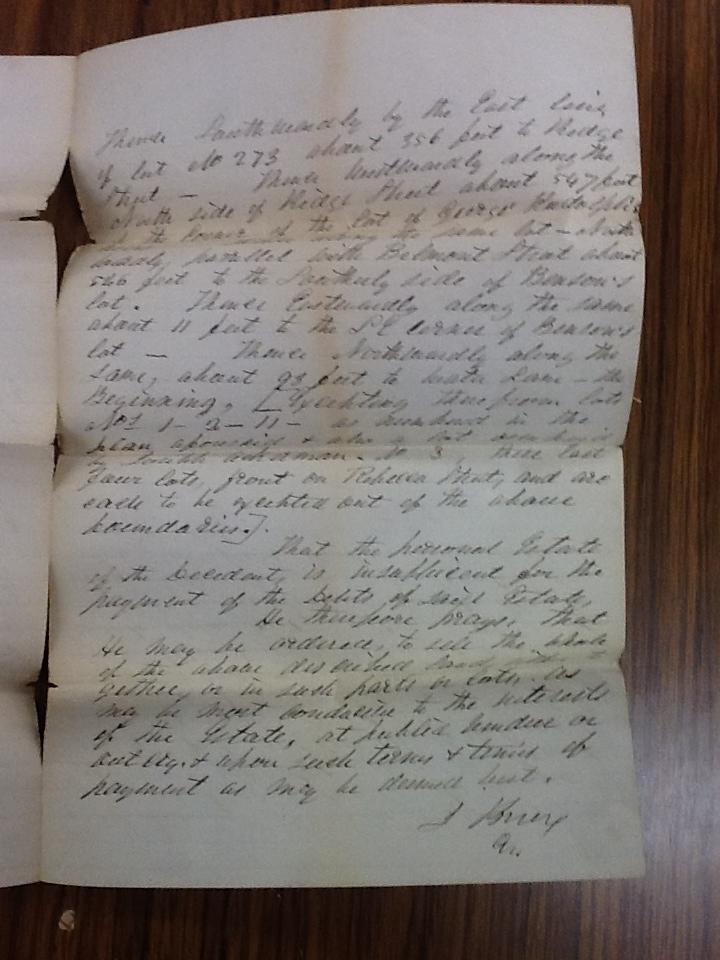 Thence Southwardly by the East line
of lot No 273 about 356 feet to Ridge
Street — Thence Westwardly along the
North side of Ridge Street about 547 feet
to the corner of the lot of George
wardly parallel with Belmont Street about
566 feet to the Southerly side of Benson's
lot. Thence Eastwardly along the same
about 11 feet to the S E corner of Benson's
lot — Thence Northwardly along the
same, about 98 feet to Water Lane — the
Beginning, [Excepting therefrom lots
Nos 1 - 2 - 11 - as numbered in the
plan
No 3, these last
four lots, front on Rebecca Street, and are
each to be excepted out of the above
boundaries.]
That the personal Estate
of the Decedent, is insufficient for the
payment of the Debts of said Estate,
He therefore prays, that
He may be ordered, to sell the whole
of the above described land, either to
gether, or in such parts or lots, as
may be most conducive to the interests
of the Estate, at public vendue or
outcry & upon such terms & times of
payment as may be deemed best.